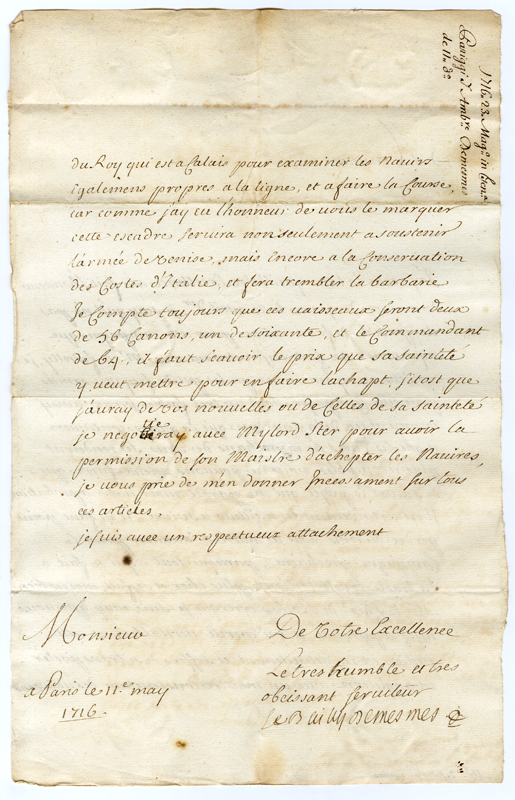 1716. 23. Magᵒ in Gen.ᵃ
Pariggi Il Ambʳᵉ Demesmes
de 11 dᵒ
du Roy qui est a Calais pour examiner les Navires
Egalemens propres a la ligne, et a faire la Course,
car comme j'ay eu l'honneur de vous le marquer
cette escadre servira non seulement a soustenir
l'armée de Venise, mais Encore a la Conservation
des Costes d'Italie, et fera trembler la barbarie
Je Compte toujours que ces vaisseaux seront deux
de 56 Canons, un de soixante, et le Commandant
de 64., il faut sçavoir le prix que sa sainteté
y veut mettre pour en faire lachapt, sitost que
j'auray de Vos nouvelles ou de Celles de sa sainteté
je negotieray avec Mylord Ster pour avoir la
permission de son Maistre d'achepter les Navires,
je vous prie de m'en donner Incessament sur tous
ces articles.
je suis avec un respectueux attachement
Monsieur
De Votre Excellence
Le tres humble et tres
obeissant serviteur
Le Bailly Demesmes
a Paris le 11.ᵉ may
1716.